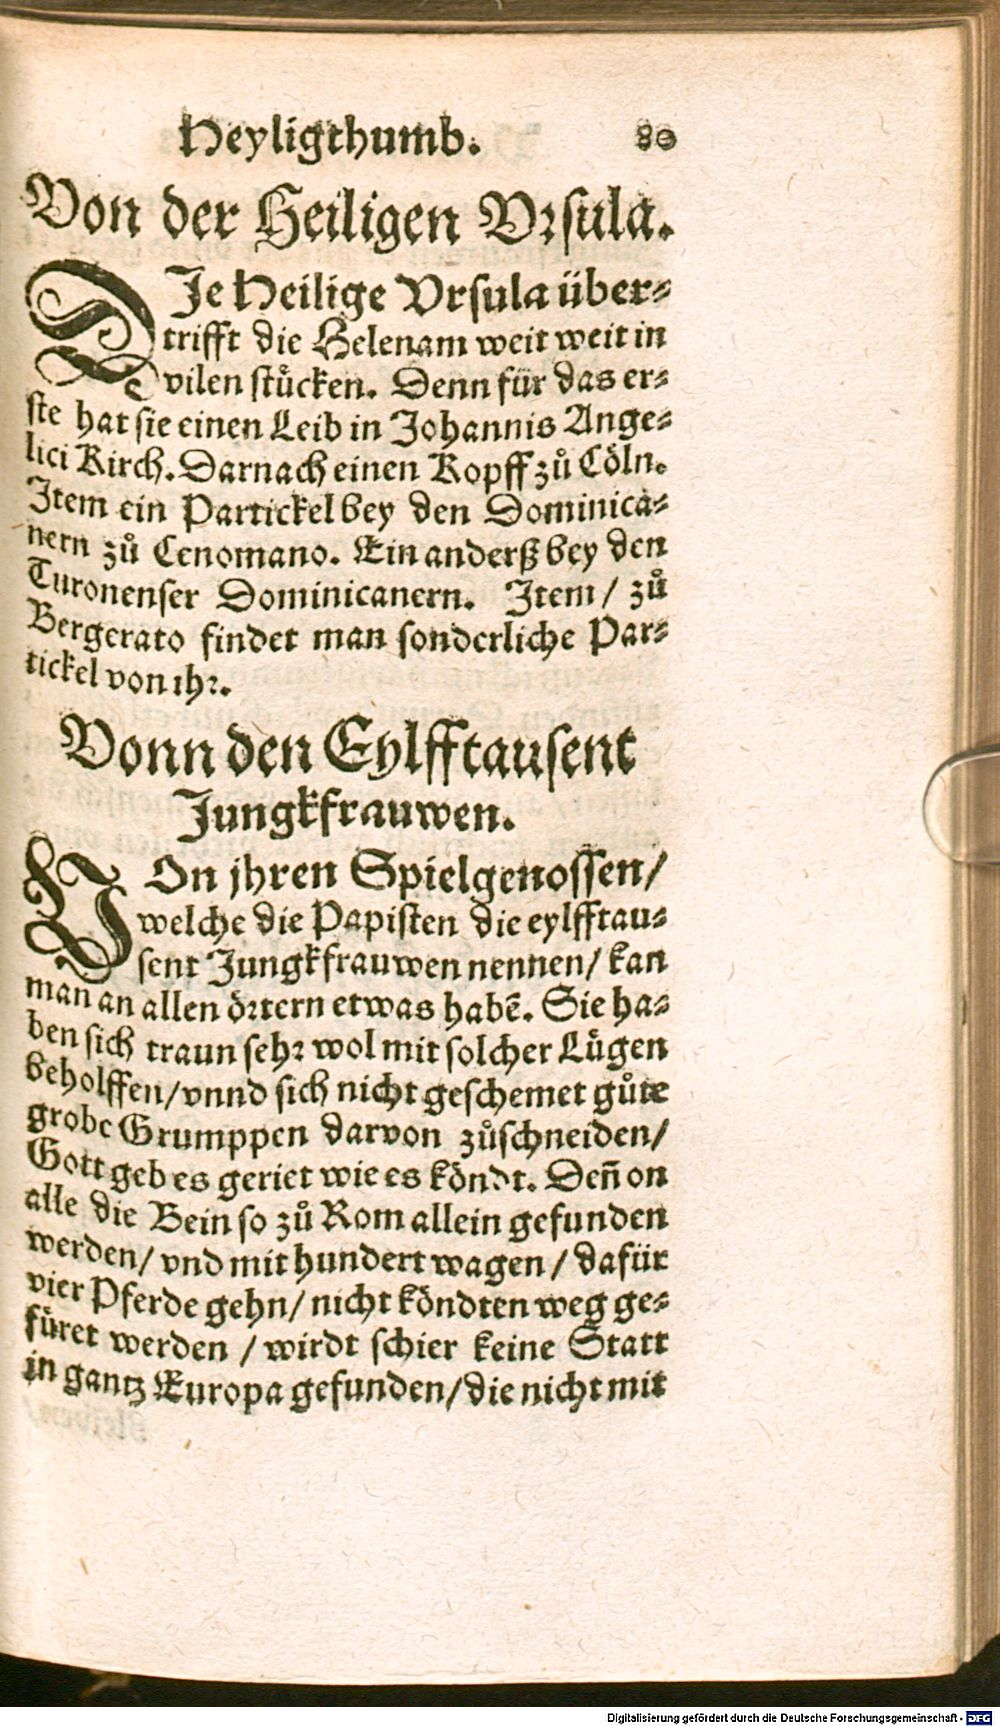 Heyligthumb. 80
Von der Heiligen Vrsula.
DJe Heilige Vrsula über-
trifft die Helenam weit weit in
vilen stůcken. Denn für das er-
ste hat sie einen Leib in Johannis Ange-
lici Kirch. Darnach einen Kopff zů Cöln.
Jtem ein Partickel bey den Dominica-
nern zů Cenomano. Ein anderß bey den
Turonenser Dominicanern. Jtem / zů
Bergerato findet man sonderliche Par-
tickel von ihr.
Vonn den Eylfftausent
Jungkfrauwen.
VOn jhren Spielgenossen/
welche die Papisten die eylfftau-
sent Jungkfrauwen nennen/ kan
man an allen örtern etwas habē. Sie ha-
ben sich traun sehr wol mit solcher Lügen
beholffen/ vnnd sich nicht geschemet gůte
grobe Grumppen darvon zůschneiden/
Gott geb es geriet wie es köndt. Deñ on
alle die Bein so zů Rom allein gefunden
werden/ vnd mit hundert wagen / dafür
vier Pferde gehn/ nicht köndten weg ge-
füret werden / wirdt schier keine Statt
in gantz Europa gefunden/ die nicht mit
Digitalisierung gefördert durch die Deutsche Forschungsgemeinschaft - DFG